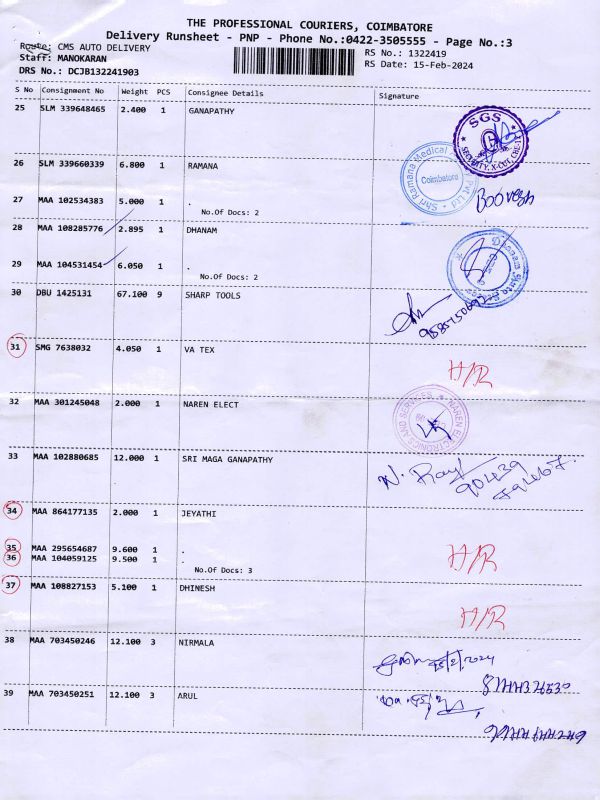 THE PROFESSIONAL COURIERS, COIMBATORE
Delivery Runsheet - PNP - Phone No.:0422-3505555 - Page No.:3
Route: CMS AUTO DELIVERY
RS No.: 1322419
Staff: MANOKARAN
RS Date: 15-Feb-2024
DRS No.: DCJB132241903
S No Consignment No Weight PCS Consignee Details Signature
25 SLM 339648465 2.400 1 GANAPATHY
SGS
26 SLM 339660339 6.800 1 RAMANA
Shri Ramana Medical
Pvt Ltd
Coimbatore
27 MAA 102534383 5.000 1 .
No.Of Docs: 2
28 MAA 108285776 2.895 1 DHANAM
29 MAA 104531454 6.050 1 .
No.Of Docs: 2
30 DBU 1425131 67.100 9 SHARP TOOLS
31 SMG 7638032 4.050 1 VA TEX
H/R
32 MAA 301245048 2.000 1 NAREN ELECT
NAREN ELECTRONICS AND SERVICES
33 MAA 102880685 12.000 1 SRI MAGA GANAPATHY
34 MAA 864177135 2.000 1 JEYATHI
35 MAA 295654687 9.600 1 .
36 MAA 104059125 9.500 1 .
H/R
No.Of Docs: 3
37 MAA 108827153 5.100 1 DHINESH
H/R
38 MAA 703450246 12.100 3 NIRMALA
39 MAA 703450251 12.100 3 ARUL